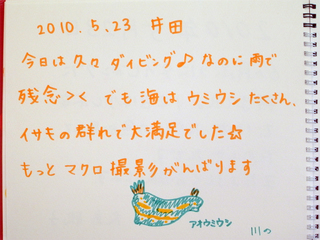 2010.5.23 井田
今日は久々ダイビング♪なのに雨で
残念><でも海はウミウシたくさん、
イサキの群れで大満足でした☆
もっとマクロ撮影がんばります
アオウミウシ